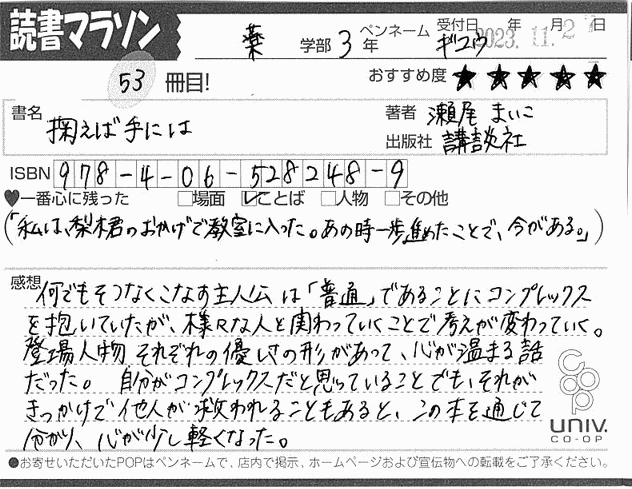 読書マラソン
薬 学部 3 年 ペンネーム ギユウ 受付日 年 月 日
2023.11.2
53 冊目!
おすすめ度 ★★★★★
書名 掬えば手には
著者 瀬尾 まいこ
出版社 講談社
ISBN 978-4-06-528248-9
♥一番心に残った □場面 ☑ことば □人物 □その他
(「私は、梨木君のおかげで教室に入った。あの時一歩進めたことで、今がある。」)
感想 何でもそつなくこなす主人公は「普通」であることにコンプレックス
を抱いていたが、様々な人と関わっていくことで考えが変わっていく。
登場人物それぞれの優しさの形があって、心が温まる話
だった。自分がコンプレックスだと思っていることでも、それが
きっかけで他人が救われることもあると、この本を通じて
分かり、心が少し軽くなった。
coop
UNIV.
CO-OP
●お寄せいただいたPOPはペンネームで、店内で掲示、ホームページおよび宣伝物への転載をご了承ください。